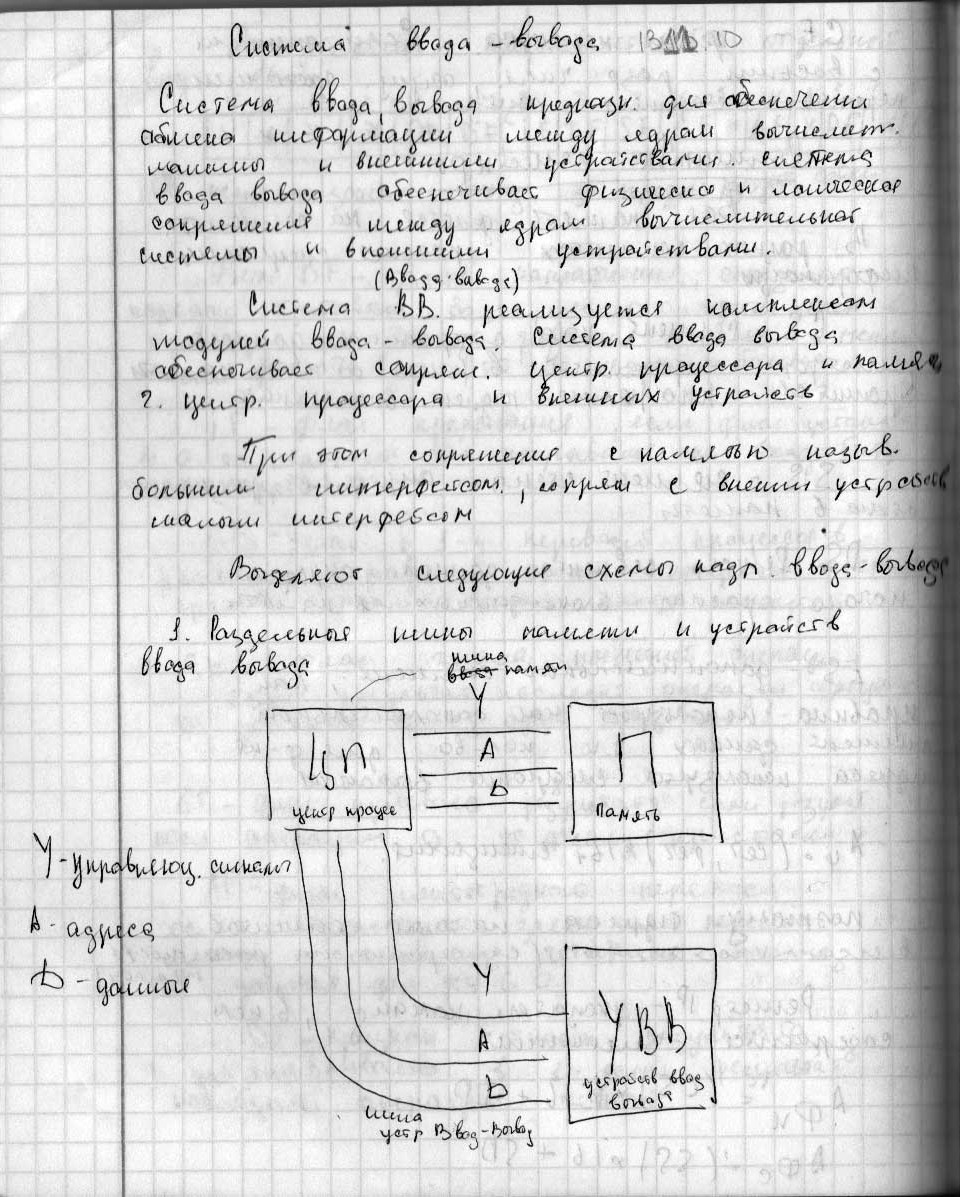 Система ввода - вывода 13 11 10
Система ввода, вывода предназн. для обеспечения
обмена информации между ядром вычислит.
машины и внешними устройствами. система
ввода вывода обеспечивает физическое и логическое
сопряжение между ядром вычислительной
системы и внешними устройствами.
(Ввода-вывода)
Система ВВ. реализуется комплексом
модулей ввода - вывода. Система ввода вывода
обеспечивает сопряж. центр. процессора и памяти
2. центр. процессора и внешних устройств
При этом сопряжение с памятью назыв.
большим интерфейсом, сопряж с внешн устройств
малым интерфейсом
Выделяют следующие схемы ввода-вывода
1. Раздельные шины памяти и устройств
ввода вывода
шина
ввода памяти
У
А
D
ЦП
центр процес
П
Память
У - управляющ. сигналы
А - адреса
D - данные
У
А
D
УВВ
устройств ввод
вывода
шина
устр Ввод-Вывод